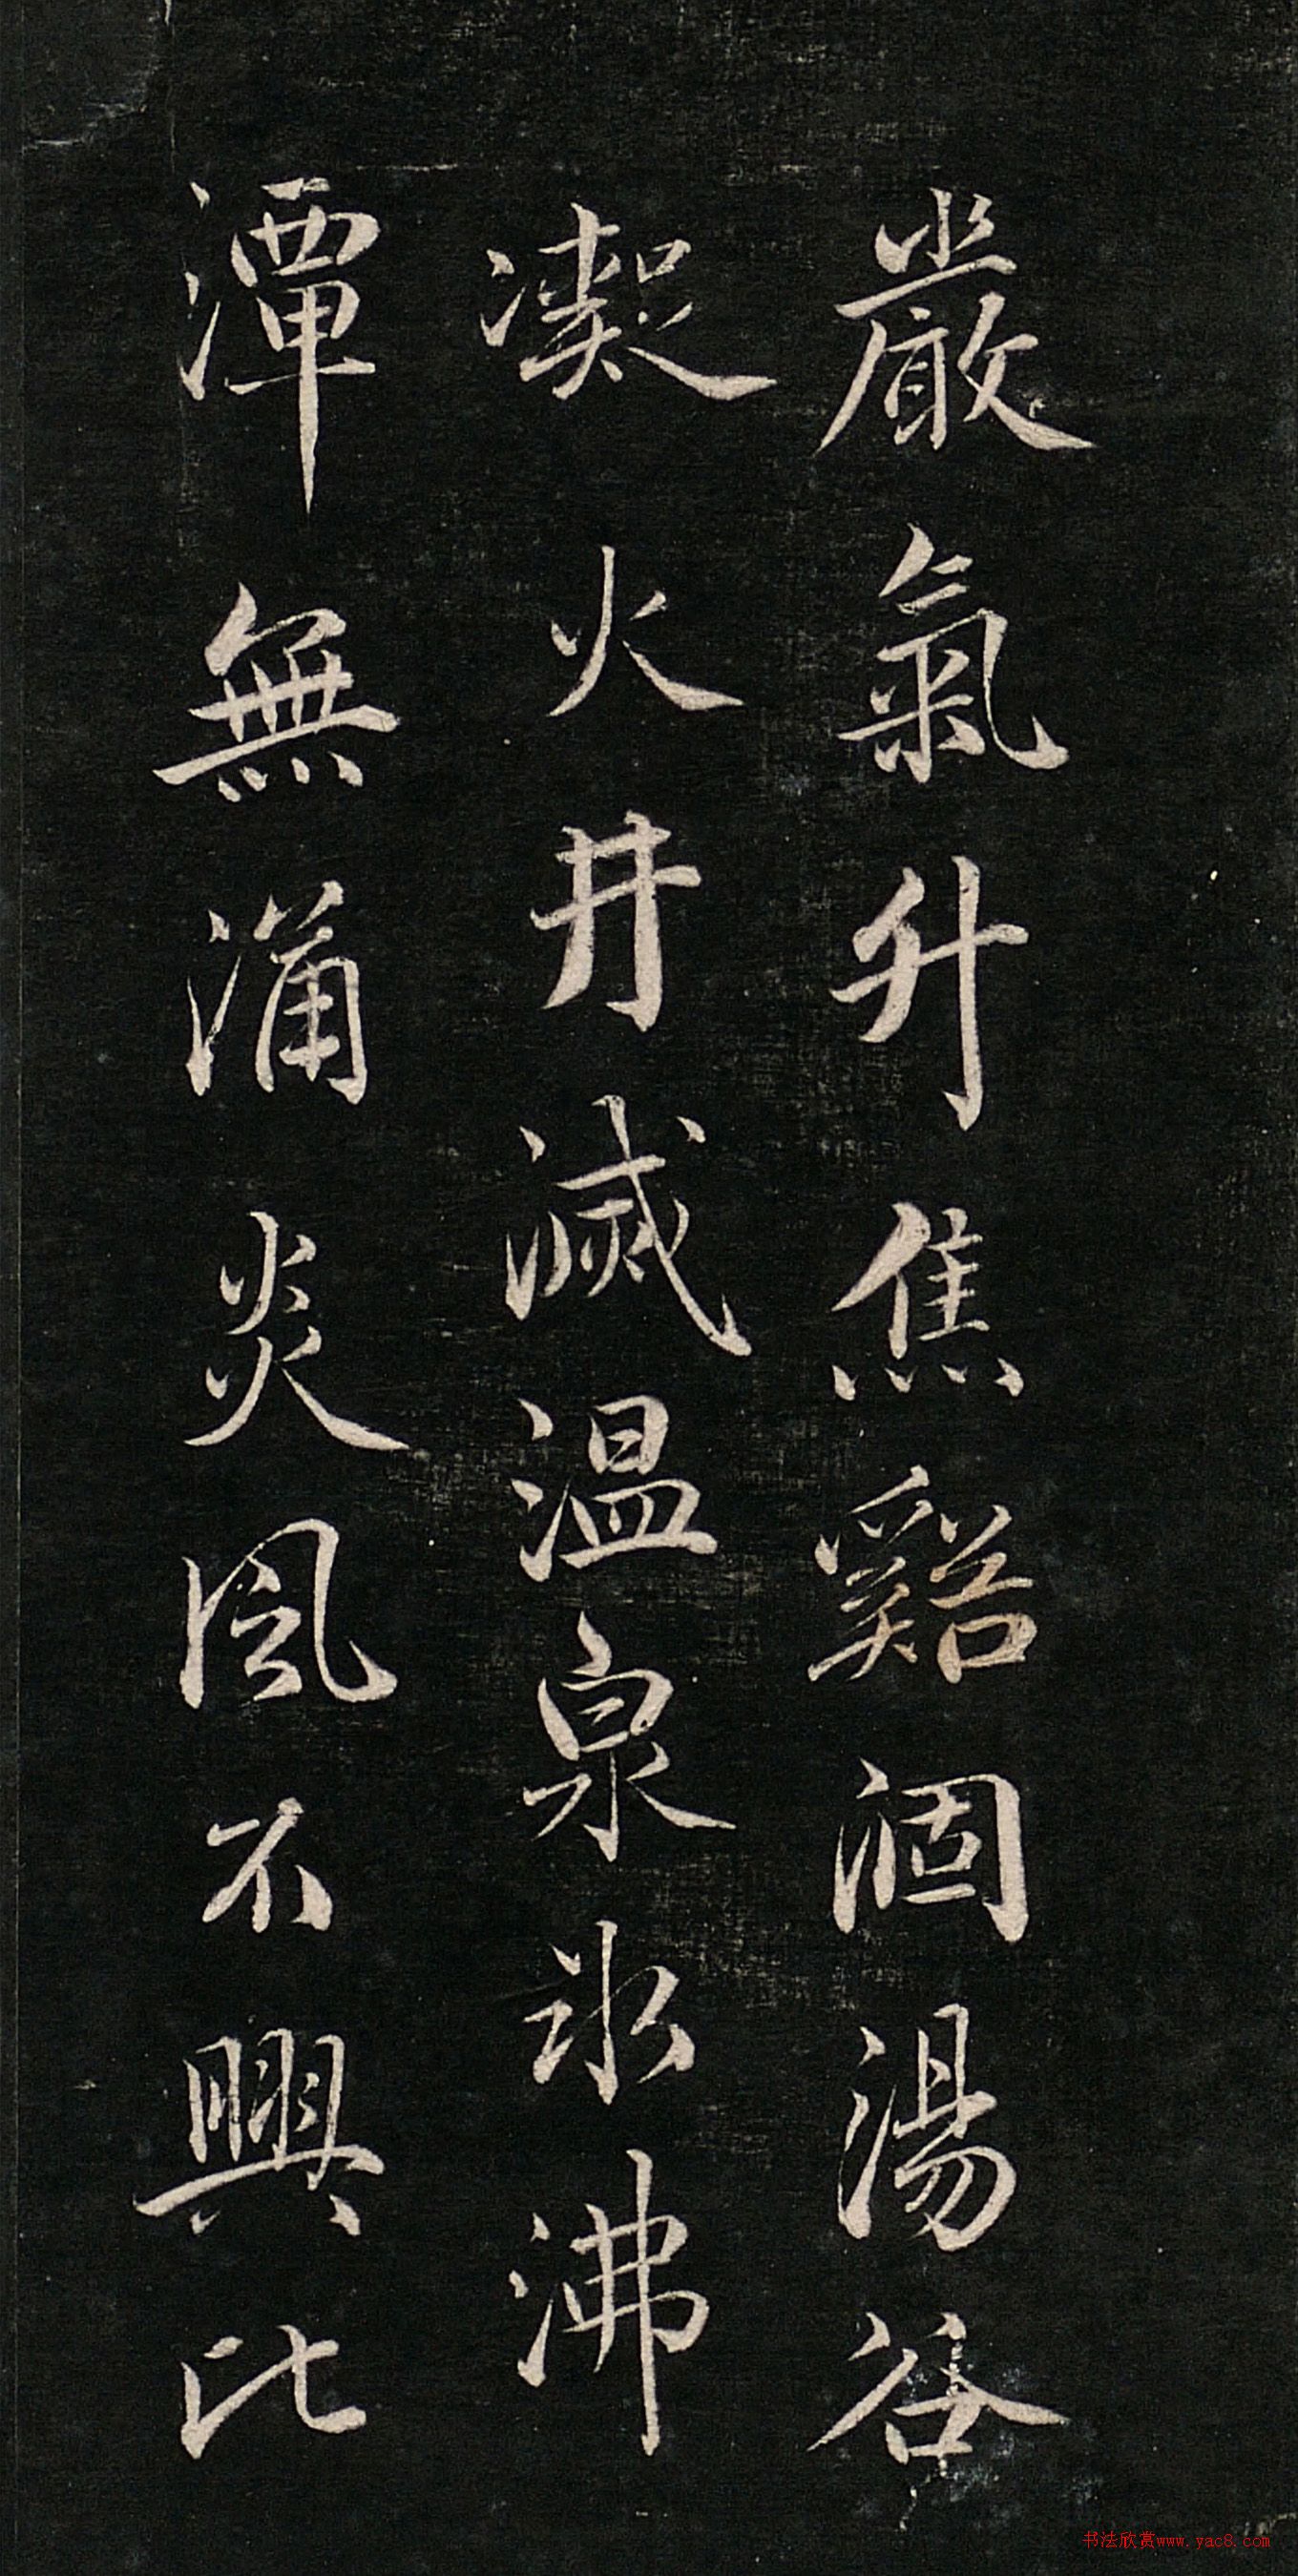 嚴氣升焦谿涸湯谷
凝火井滅溫泉冰沸
潭無涌炎風不興北
书法欣赏www.yac8.com